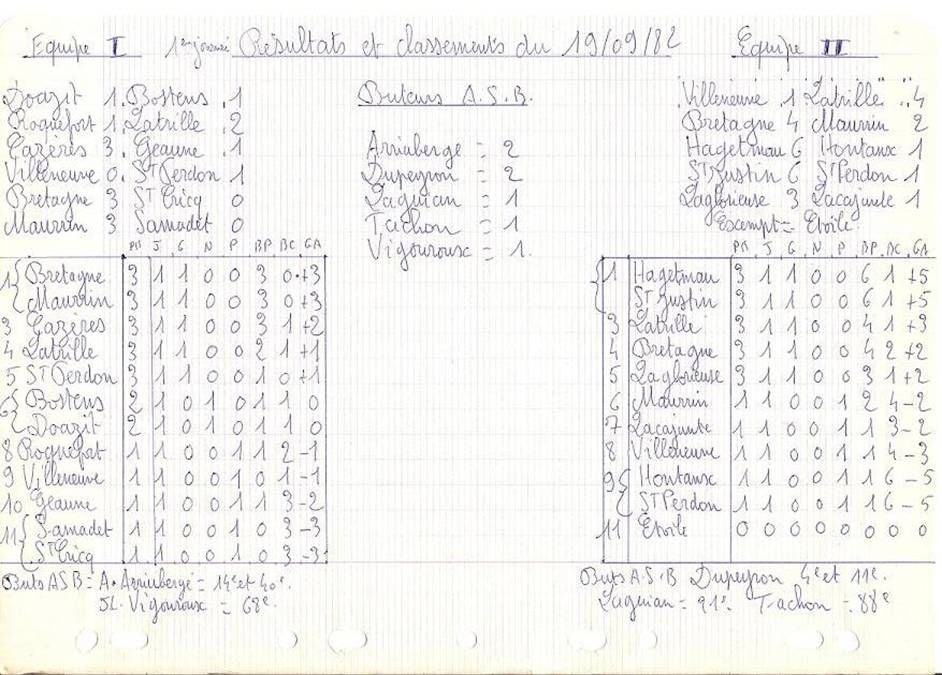 Equipe I 1ère journée Résultats et classements du 19/09/82 Equipe II
Doazit 1. Bostens 1
Roquefort 1. Latrille 2
Cazères 3. Geaune 1
Villeneuve 0. St Perdon 1
Bretagne 3 St Cricq 0
Maurrin 3 Samadet 0
Buteurs A.S.B.
Arriuberge = 2
Dupeyron = 2
Laguian = 1
Tachon = 1
Vigouroux = 1.
Villeneuve 1 Latrille 4
Bretagne 4 Maurrin 2
Hagetmau 6 Hontanx 1
St Justin 6 St Perdon 1
Laglorieuse 3 Lacajunte 1
Exempt = Etoile
Pts J G N P BP BC GA
1 Bretagne 3 1 1 0 0 3 0 +3
Maurrin 3 1 1 0 0 3 0 +3
3 Cazères 3 1 1 0 0 3 1 +2
4 Latrille 3 1 1 0 0 2 1 +1
5 St Perdon 3 1 1 0 0 1 0 +1
6 Bostens 2 1 0 1 0 1 1 0
Doazit 2 1 0 1 0 1 1 0
8 Roquefort 1 1 0 0 1 1 2 -1
9 Villeneuve 1 1 0 0 1 0 1 -1
10 Geaune 1 1 0 0 1 1 3 -2
11 Samadet 1 1 0 0 1 0 3 -3
St Cricq 1 1 0 0 1 0 3 -3
Buts ASB = A. Arriuberge = 14e et 40e.
JL. Vigouroux = 68e.
Pts J G N P BP BC GA
1 Hagetmau 3 1 1 0 0 6 1 +5
St Justin 3 1 1 0 0 6 1 +5
3 Latrille 3 1 1 0 0 4 1 +3
4 Bretagne 3 1 1 0 0 4 2 +2
5 Laglorieuse 3 1 1 0 0 3 1 +2
6 Maurrin 1 1 0 0 1 2 4 -2
7 Lacajunte 1 1 0 0 1 1 3 -2
8 Villeneuve 1 1 0 0 1 1 4 -3
9 Hontanx 1 1 0 0 1 1 6 -5
St Perdon 1 1 0 0 1 1 6 -5
11 Etoile 0 0 0 0 0 0 0 0
Buts A.S.B Dupeyron 4e et 11e.
Laguian = 91e. Tachon = 88e